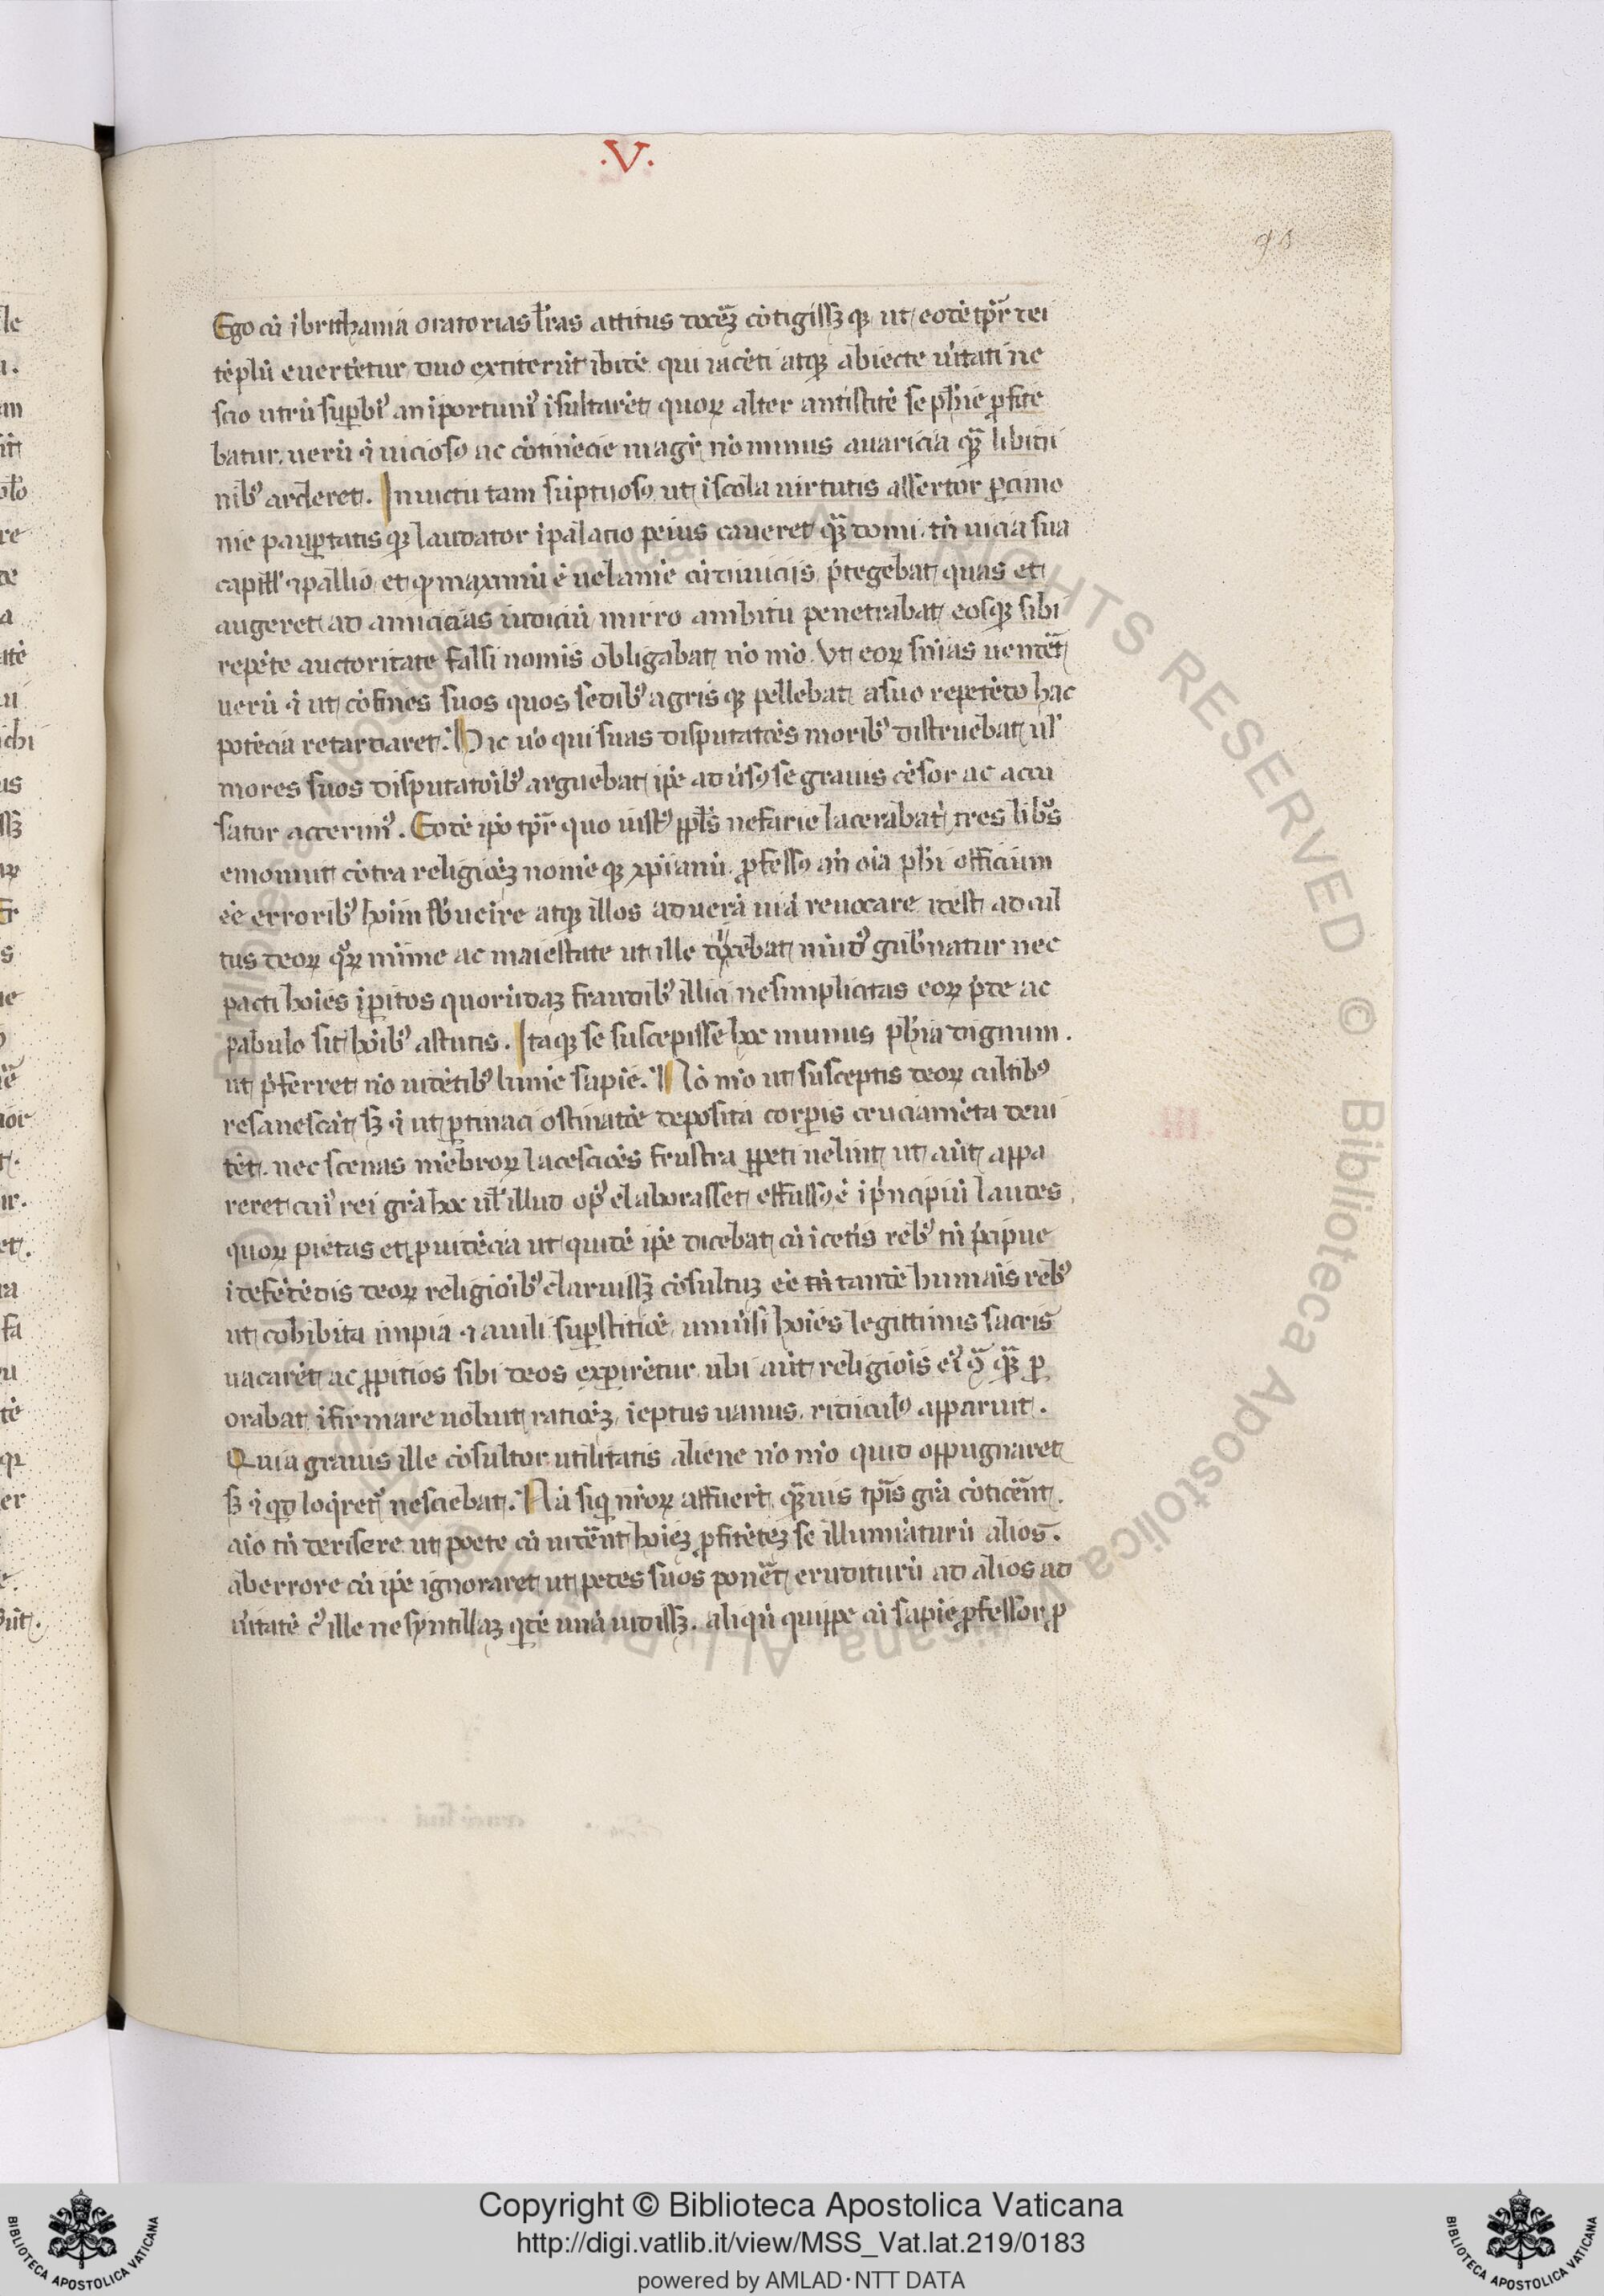 ·V·
90
Ego cū ībrithania oratorias lr̄as attitus docēꝫ cōtigissꝫ qꝫ ut eodē tp̄r dei
tēplū euertētur duo extiterūt ibidē qui iacēti atqꝫ abiecte u̇itati ne
scio utrū suꝑbiꝰ an īportuniꝰ īsultarēt quoꝝ alter antistitē se ph̄ie ꝓfite
batur. uerū ⁊ uiciosꝰ ac cōtinēcie magr̄ nō minus auaricia qꝫ libidi
nibꝰ arderet. In uictu tam sūptuosꝰ ut ī scola uirtutis assertor ꝑcimo
nie pauꝑtatis qꝫ laudator ī palacio peius caueret qꝫ̄ domi. tn̄ uicia sua
capill' ⁊ pallio et qꝫ maximū ē uelamē diuiciis p̄tegebat quas et
augeret ad amicicias iudicū mirro ambitu penetrabat eosqꝫ sibi
repēte auctoritate falsi nomīs obligabat nō mō. Vt eoꝝ sn̄ias uendēt
uerū ⁊ ut cōfines suos quos sedibꝰ agris qꝫ pellebat a suo repetēdo hac
potēcia retardaret. Hic u̇o qui suas disputatōes moribꝰ distruebat ul'
mores suos disputatōibꝰ arguebat ip̄e aduersꝰ se grauis cēsor ac accu
sator accerimꝰ. Eodē ip̄o tp̄r quo iustꝰ ppl̄s nefarie lacerabat tres libꝰs
emouuit cōtra religiōeꝫ nomē qꝫ xp̄ianū. ꝓfessꝰ an̄ oīa ph̄i officium
ēe erroribꝰ hoīm sb̄ueīre atqꝫ illos ad uerā uiā reuocare idest ad cul
tus deoꝝ qꝝ numīe ac maiestate ut ille dicebat mūdꝰ gub̄natur nec
pacti hoīes īꝑitos quorūdaꝫ fraudibꝰ illici ne simplicitas eoꝝ p̄de ac
pabulo sit hoībꝰ astutis. Itaqꝫ se suscepisse hoc munus ph̄ia dignum.
ut p̄ferret nō uidētibꝰ lumē sapīe. Nō mō ut susceptis deoꝝ cultibꝰ
resanescāt sꝫ ⁊ ut ꝑtinaci ostinatōe deposita corꝑis cruciamēta deui
tēt. nec sceuas mēbroꝝ lacescōes frustra ꝑpeti uelint ut aūt appa
reret cuiꝰ rei grā hoc ul' illud opꝰ elaborasset effussꝰ ē ī p̄ncipiū laudes
quoꝝ pietas et ꝓuidēcia ut quidē ip̄e dicebat cū ī cetīs rebꝰ tū p̄cipue
ī defēdēdis deoꝝ religiōibꝰ claruissꝫ cōsultuꝫ ēe tn̄ tandē humāis rebꝰ
ut cohibita impia ⁊ anili suꝑstitiōe uniu̇si hoīes legittimis sacris
uacarēt ac ꝓpitios sibi deos exꝑirētur ubi aūt religiōis eiꝰ ꝯ̄ qꝫ̄ ꝑ
orabat īfirmare uoluit ratiōeꝫ īeptus uanus. ridiculꝰ apparuit.
Quia grauis ille cōsultor utilitatis aliene nō mō quid oppugnaret
sꝫ ⁊ qd̄ loq̄retꝰ nesciebat. Nā siqꝫ nr̄oꝝ affuert̄ qꝫuis tp̄is grā cōticēnt.
aīo tn̄ derisere ut poete cū uidēnt hoīeꝫ ꝓfitēteꝫ se illumināturū alios.
ab errore cū ip̄e ignoraret ut pedes suos ponēt eruditurū ad alios ad
u̇itatē cꝰ ille ne syntillaꝫ qdē unā uidissꝫ. aliqū quippe cū sapīe ꝓfessor ꝓ
Copyright © Biblioteca Apostolica Vaticana
http://digi.vatlib.it/view/MSS_Vat.lat.219/0183
powered by AMLAD·NTT DATA